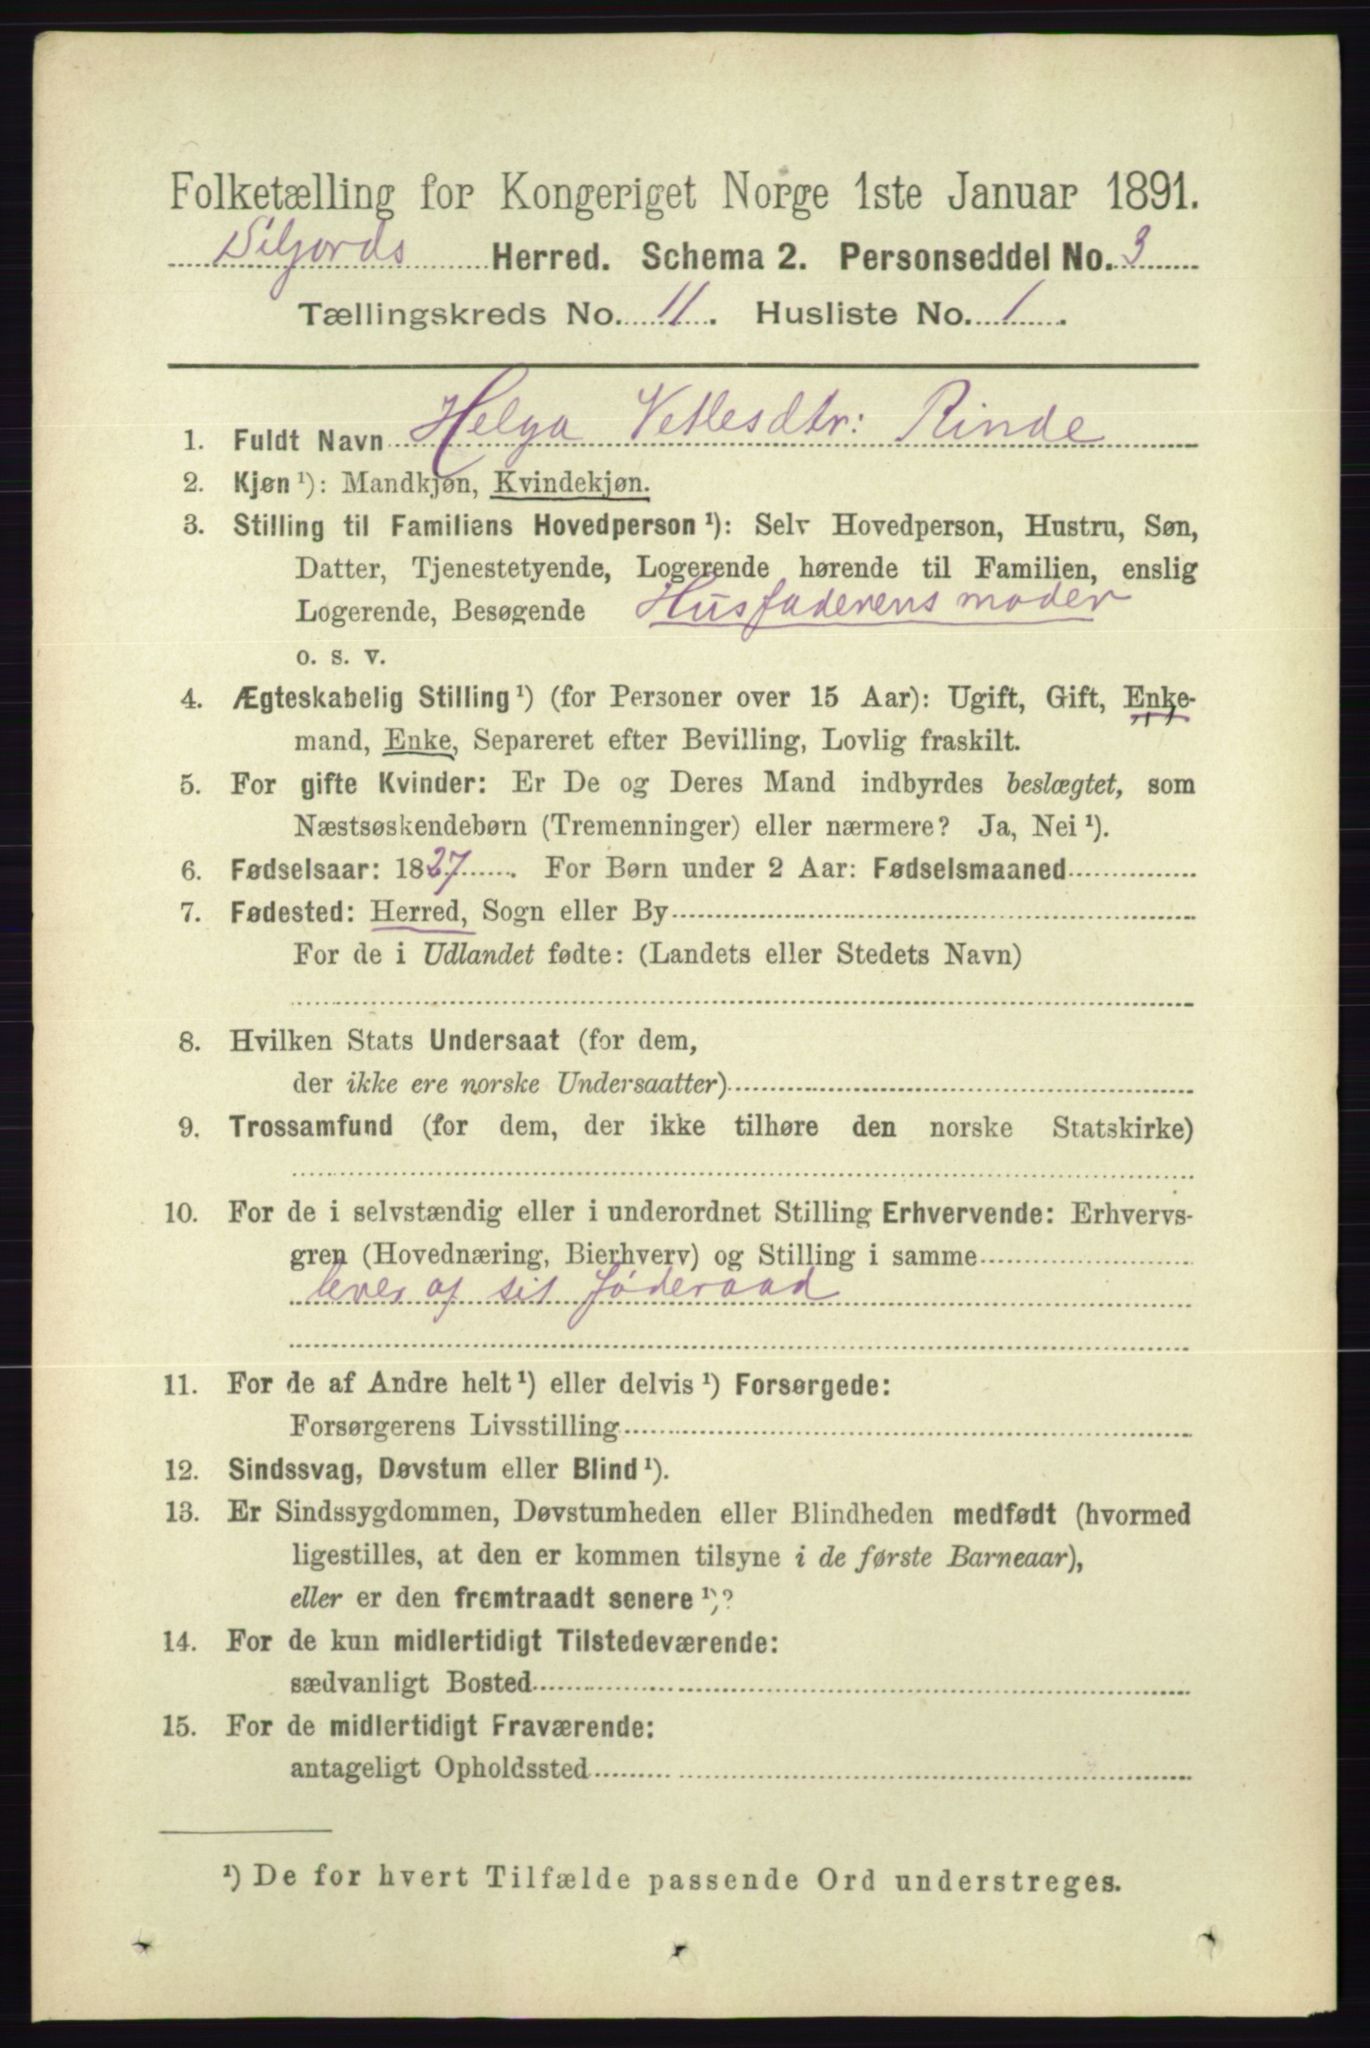 Folketælling for Kongeriget Norge 1ste Januar 1891.
Siljords Herred. Schema 2. Personseddel No. 3
Tællingskreds No. 11. Husliste No. 1.
1. Fuldt Navn Helga Vetlesdtr: Rinde
2. Kjøn ¹): Mandkjøn, Kvindekjøn.
3. Stilling til Familiens Hovedperson ¹): Selv Hovedperson, Hustru, Søn,
Datter, Tjenestetyende, Logerende hørende til Familien, enslig
Logerende, Besøgende Husfaderens moder
o. s. v.
4. Ægteskabelig Stilling ¹) (for Personer over 15 Aar): Ugift, Gift, Enke-
mand, Enke, Separeret efter Bevilling, Lovlig fraskilt.
5. For gifte Kvinder: Er De og Deres Mand indbyrdes beslægtet, som
Næstsøskendebørn (Tremenninger) eller nærmere? Ja, Nei ¹).
6. Fødselsaar: 1827. For Børn under 2 Aar: Fødselsmaaned
7. Fødested: Herred, Sogn eller By
For de i Udlandet fødte: (Landets eller Stedets Navn)
8. Hvilken Stats Undersaat (for dem,
der ikke ere norske Undersaatter)
9. Trossamfund (for dem, der ikke tilhøre den norske Statskirke)
10. For de i selvstændig eller i underordnet Stilling Erhvervende: Erhvervs-
gren (Hovednæring, Bierhverv) og Stilling i samme
lever af sit føderaad
11. For de af Andre helt ¹) eller delvis ¹) Forsørgede:
Forsørgerens Livsstilling
12. Sindssvag, Døvstum eller Blind ¹).
13. Er Sindssygdommen, Døvstumheden eller Blindheden medfødt (hvormed
ligestilles, at den er kommen tilsyne i de første Barneaar),
eller er den fremtraadt senere ¹)?
14. For de kun midlertidigt Tilstedeværende:
sædvanligt Bosted
15. For de midlertidigt Fraværende:
antageligt Opholdssted
¹) De for hvert Tilfælde passende Ord understreges.